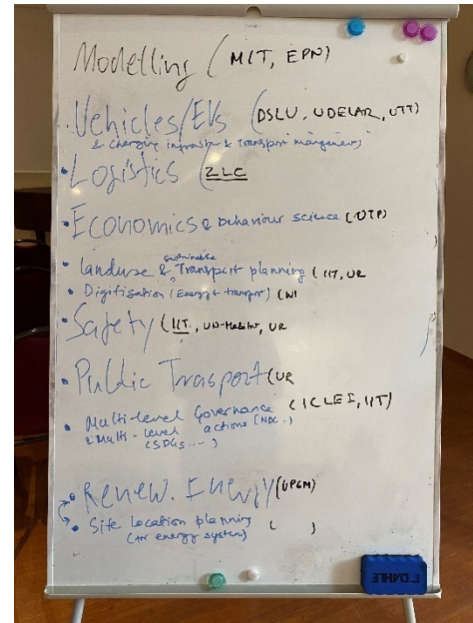 Modelling (MIT, EPN)
• Vehicles/EVs (DSLU, UDELAR, UTT)
& Charging infrastr & Transport management)
• Logistics (ZLC
• Economics & behaviour science (UTP)
sustainable
• landuse & Transport planning (IIT, UR
• Digitisation (Energy & transport) (WI
• Safety (IIT, UN-Habitat, UR
• Public Transport (UR
• Multi-level Governance (ICLEI, IIT)
& Multi-level actions (NDC..)
(SDGs...)
• Renew. Energy (UPGM)
• Site location planning ( )
(for energy system)
DAHLE